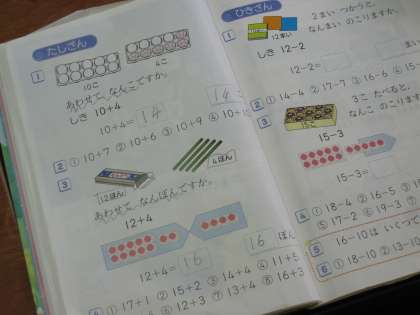 たしざん
1
10こ
4こ
あわせて、なんこですか。
しき 10+4
10+4= 14
14 こ
2 ① 10+7 ② 10+6 ③ 10+9 ④ 10+
3
12ほん
4ほん
あわせて、なんぼんですか。
12+4
12+4= 16
16 ぼん
① 17+1 ② 15+2 ③ 14+4 ④ 11+5
⑥ 12+3 ⑦ 13+4 ⑧ 16+3
ひきざん
1
12まい
2まい つかうと、
なんまい のこりますか。
しき 12-2
12-2=
2 ① 14-4 ② 17-7 ③ 16-6 ④ 15-
3
3こ たべると、
なんこ のこりますか。
15-3
15-3=
4 ① 18-4 ② 16-5 ③
⑤ 17-2 ⑥ 19-3 ⑦
5
16-10は いくつ
6 ① 18-10 ② 13-1